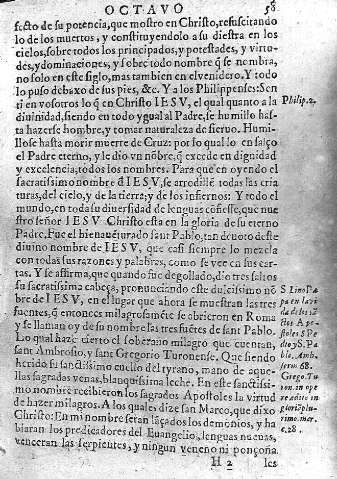 OCTAVO 58
fecto de su potencia, que mostro en Christo, resuscitando
lo de los muertos, y constituyendolo a su diestra en los
cielos, sobre todos los principados, y potestades, y virtu-
des, y dominaciones, y sobre todo nombre q̃ se nombra,
no solo en este siglo, mas tambien en el venidero. Y todo
lo puso debaxo de sus pies, &c. Y a los Philippenses: Sen
ti en vosotros lo q̃ en Christo IESV, el qual quanto a la
diuinidad, siendo en todo ygual al Padre, se humillo has-
ta hazerse hombre, y tomar naturaleza de sieruo. Humi-
llose hasta morir muerte de Cruz: por lo qual lo en salço
el Padre eterno, y le dio vn nõbre, q̃ excede en dignidad
y excelencia, todos los nombres. Para que en oyendo el
sacratissimo nombre d̃ IESV, se arrodillẽ todas las cria
turas, del cielo, y de la tierra; y de los infiernos: Y todo el
mundo, en toda su diuersidad de lenguas cõfiesse, que nue
stro señor IESV Christo esta en la gloria de su eterno
Padre. Fue el bienauẽturado sant Pablo, tan deuoto deste
diuino nombre de IESV, que casi siempre lo mezcla
con todas sus razones y palabras, como se vee en sus car-
tas. Y se affirma, que quando fue degollado, dio tres saltos
su sacratissima cabeça, pronunciando este dulcissimo nõ
bre de IESV, en el lugar que ahora se muestran las tres
fuentes, q̃ entonces milagrosamẽte se abrieron en Roma
y se llaman oy de su nombre las tres fuẽtes de sant Pablo.
Lo qual haze cierto el soberano milagro que cuentan,
sant Ambrosio, y sant Gregorio Turonense. Que siendo
herido su sanctissimo cuello del tyrano, mano de aque-
llas sagradas venas, blanquissima leche. En este sanctissi-
mo nombre recibieron los sagrados Apostoles la virtud
de hazer milagros. A los quales dize san Marco, que dixo
Christo: En mi nombre seran lãçados los demonios, y ha
blaran los predicadores del Euangelio, lenguas nueuas,
venceran las serpientes, y ningun veneno ni ponçoña
H 2 les
Philip. 2.
S. Lino Pa
pa en la vi
da de los
Apo-
stoles S. Pe
dro y S. Pa
blo. Amb.
serm. 68.
Grego. Tu
ron. in
gloria
mar.
c. 28.